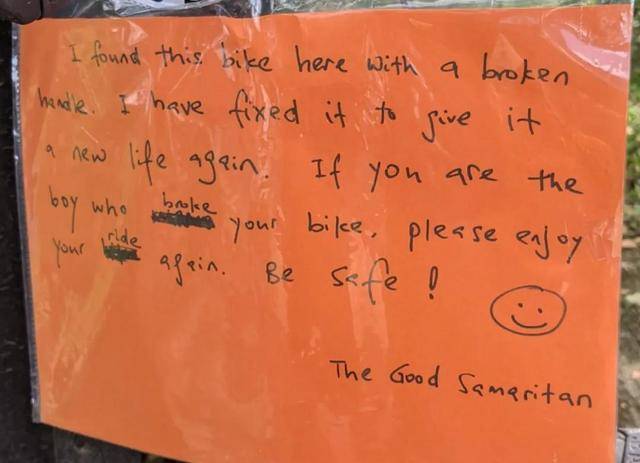 I found this bike here with a broken
handle. I have fixed it to give it
a new life again. If you are the
boy who broke your bike, please enjoy
your ride again. Be safe!
The Good Samaritan